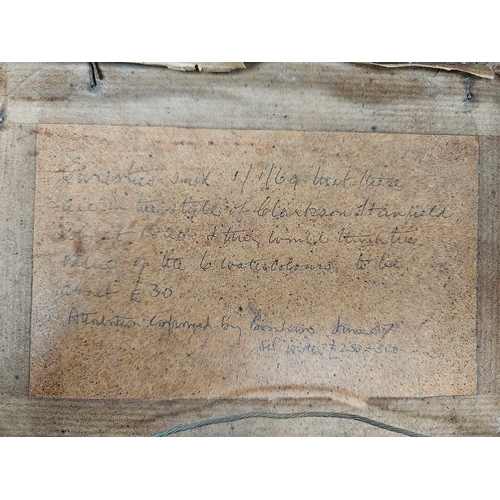 Christies said 1/1/69 that these
are in the style of Clarkson Stanfield
about 1820. & they would think the
value of the 6 watercolours to be
about £30.
Attribution confirmed by Bonhams June 87
Set worth £250-300